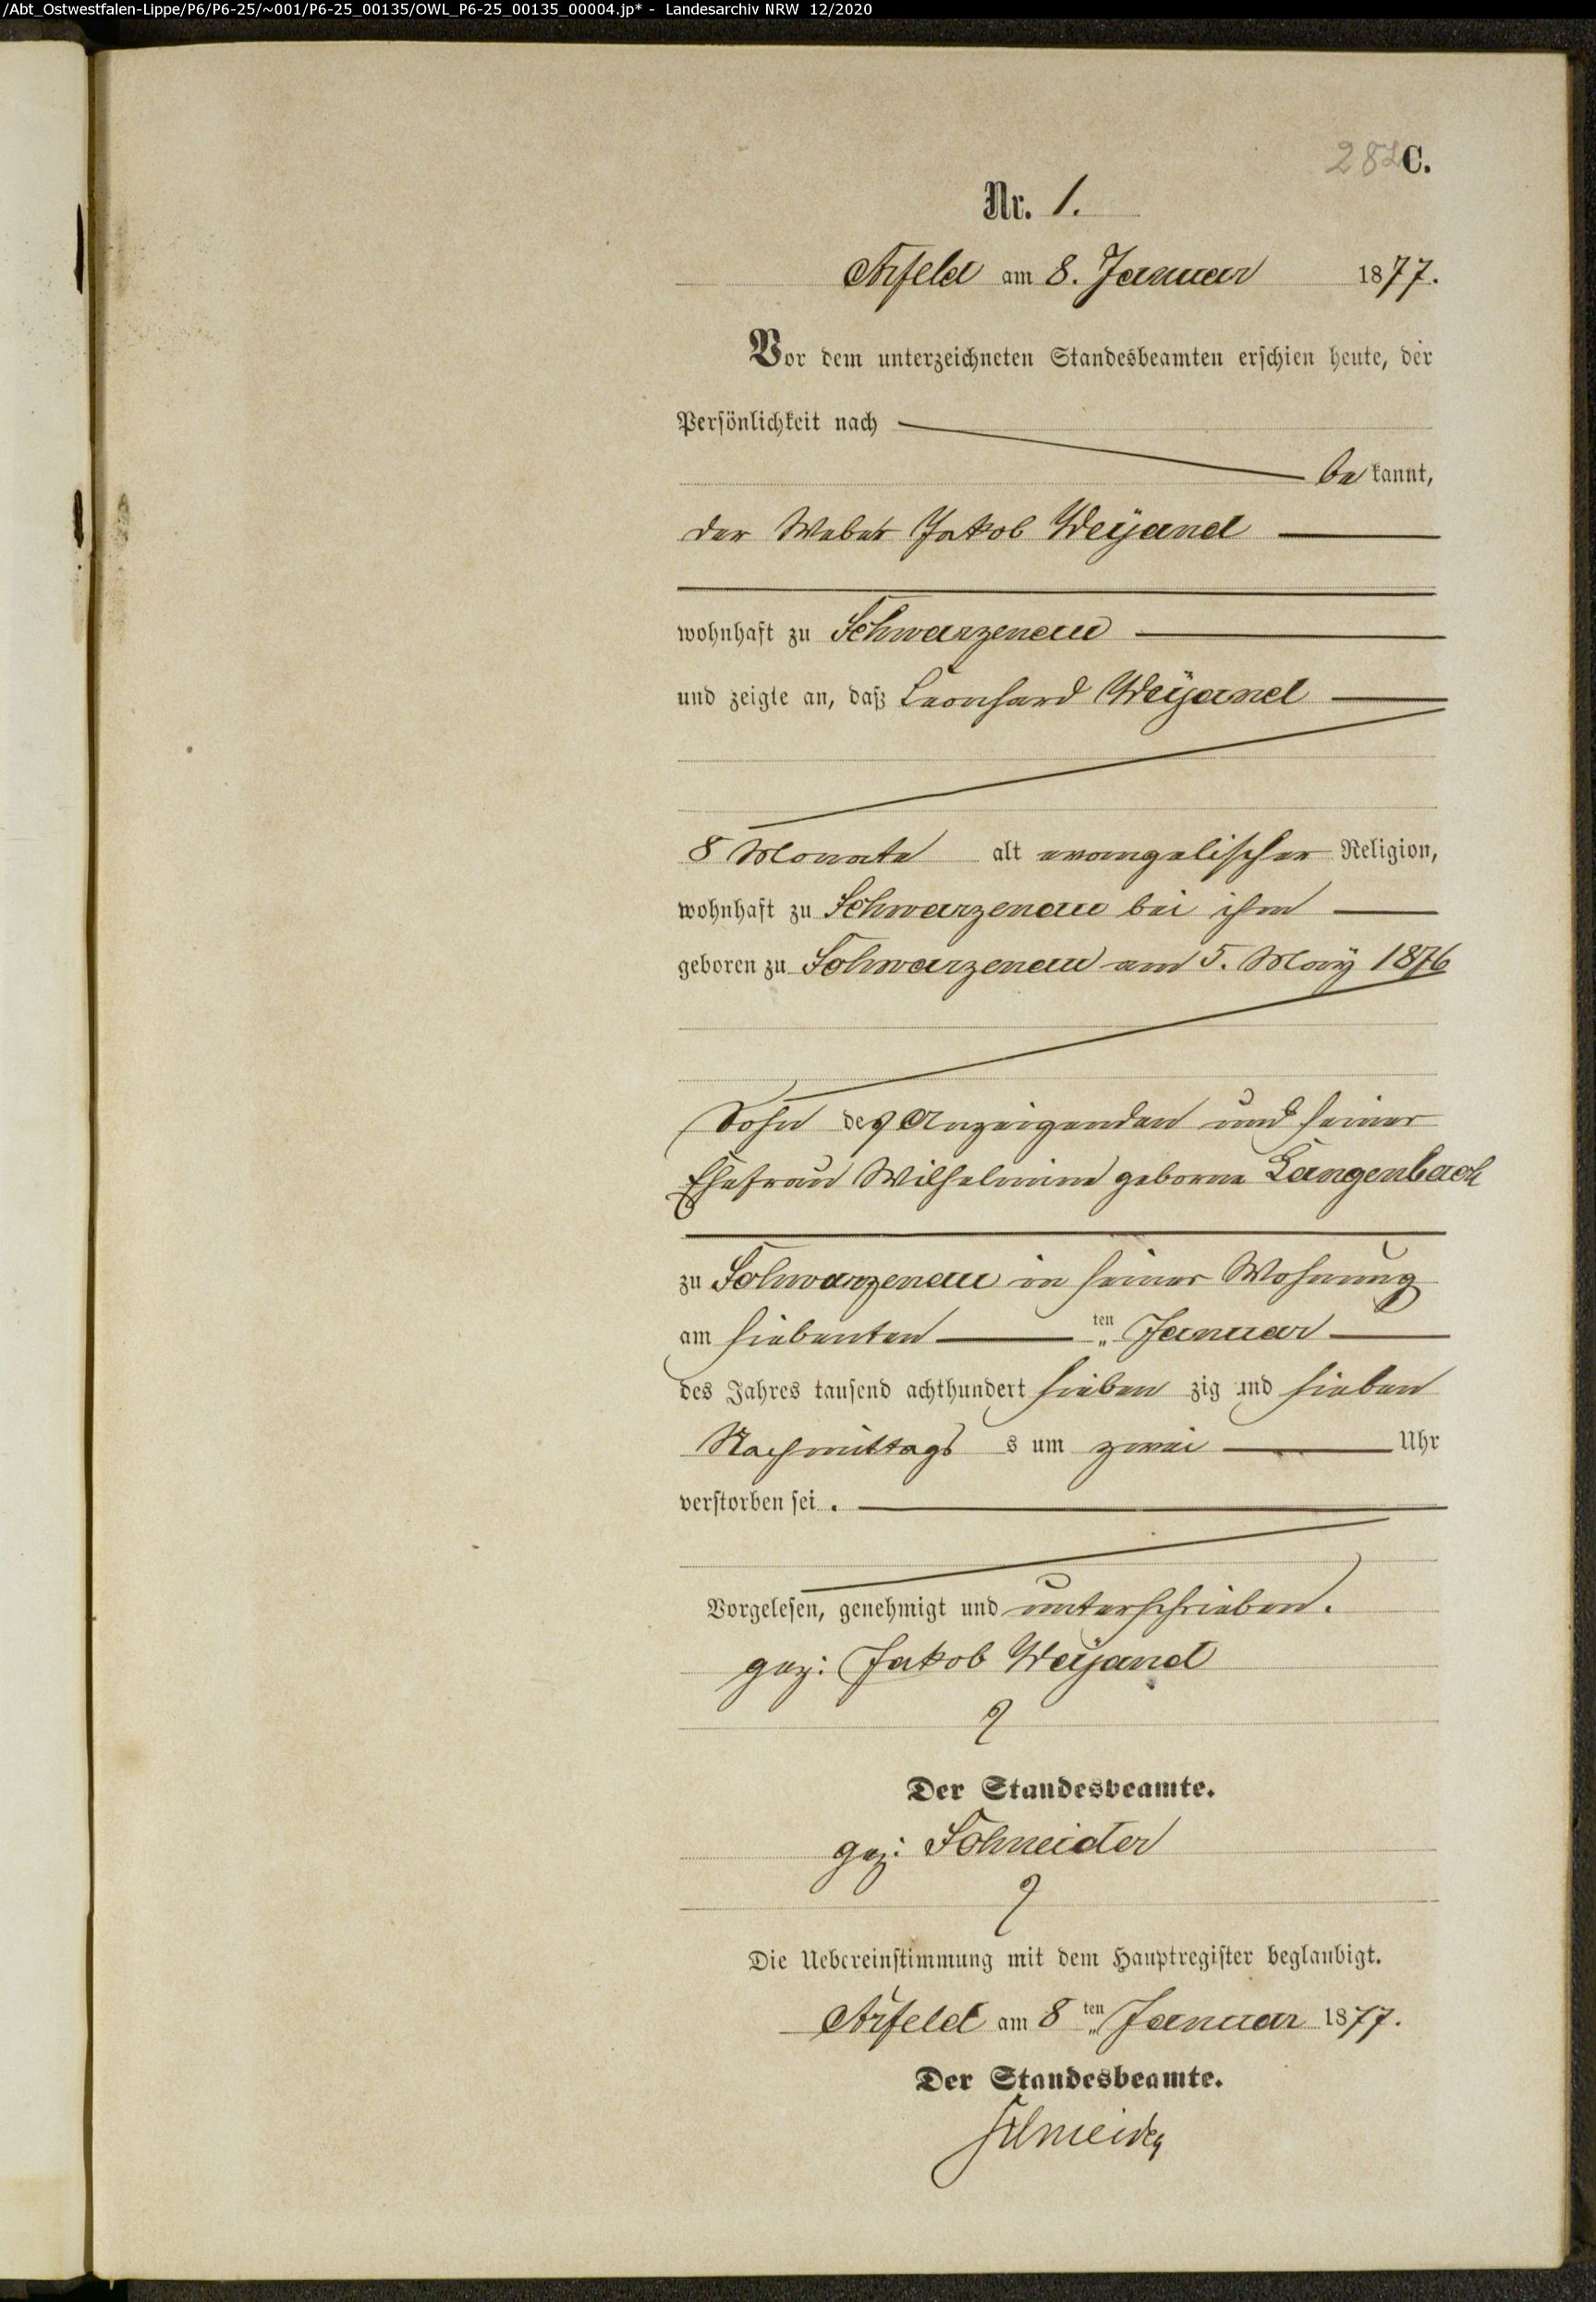 /Abt_Ostwestfalen-Lippe/P6/P6-25/~001/P6-25_00135/OWL_P6-25_00135_00004.jp* - Landesarchiv NRW 12/2020
282 C.
Nr. 1.
Arfeld am 8. Januar 1877.
Vor dem unterzeichneten Standesbeamten erschien heute, der
Persönlichkeit nach
be kannt,
der Weber Jakob Weÿand
wohnhaft zu Schwarzenau
und zeigte an, daß Leonhard Weÿand
8 Monate alt evangelischer Religion,
wohnhaft zu Schwarzenau bei ihm
geboren zu Schwarzenau am 5. Maÿ 1876
Sohn des Anzeigenden und seiner
Ehefrau Wilhelmine geborne Langenbach
zu Schwarzenau in seiner Wohnung
am siebenten ten Januar
des Jahres tausend achthundert sieben zig und sieben
Nachmittags s um zwei Uhr
verstorben sei.
Vorgelesen, genehmigt und unterschrieben.
gez: Jakob Weÿand
Der Standesbeamte.
gez: Schneider
Die Uebereinstimmung mit dem Hauptregister beglaubigt.
Arfeld am 8 ten Januar 1877.
Der Standesbeamte.
Schneider